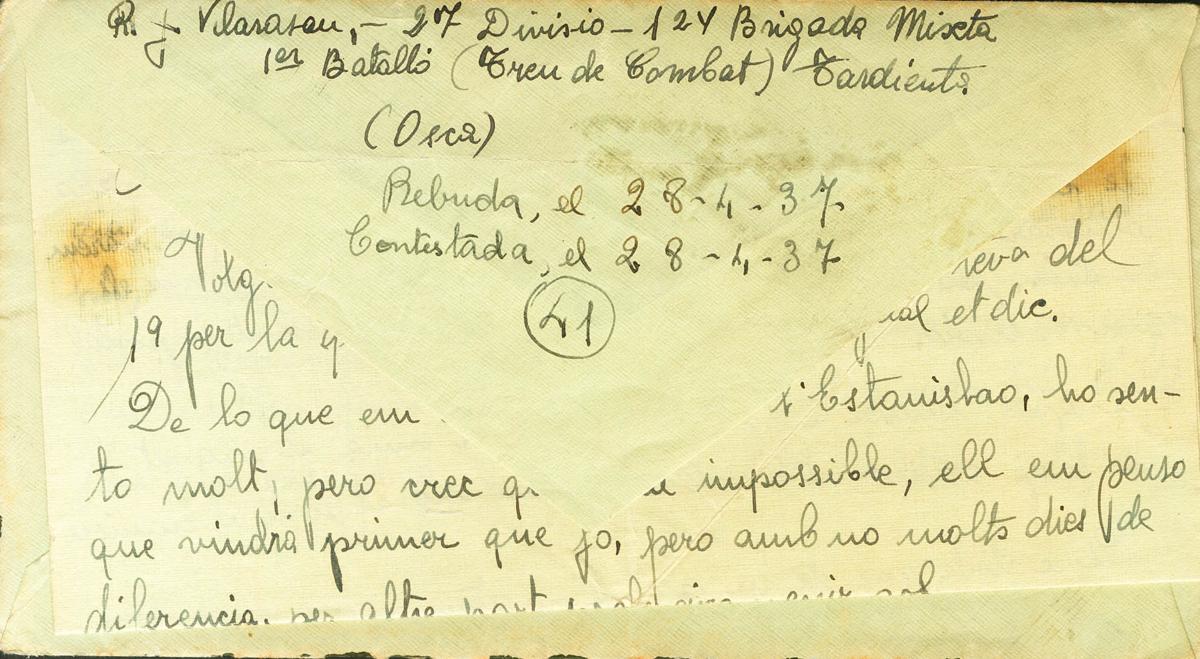 R. J. Vilarasau, - 27 Divisio - 124 Brigada Mixta
1er Batalló (Treu de Combat) Tardienta.
(Osca)
Rebuda, el 28-4-37.
Contestada, el 28-4-37
41
del
19 per la
et dic.
De lo que em Estanisbao, ho sen-
to molt, pero crec impossible, ell em penso
que vindrà primer que jo, pero amb no molts dies de
diferencia. per altre part